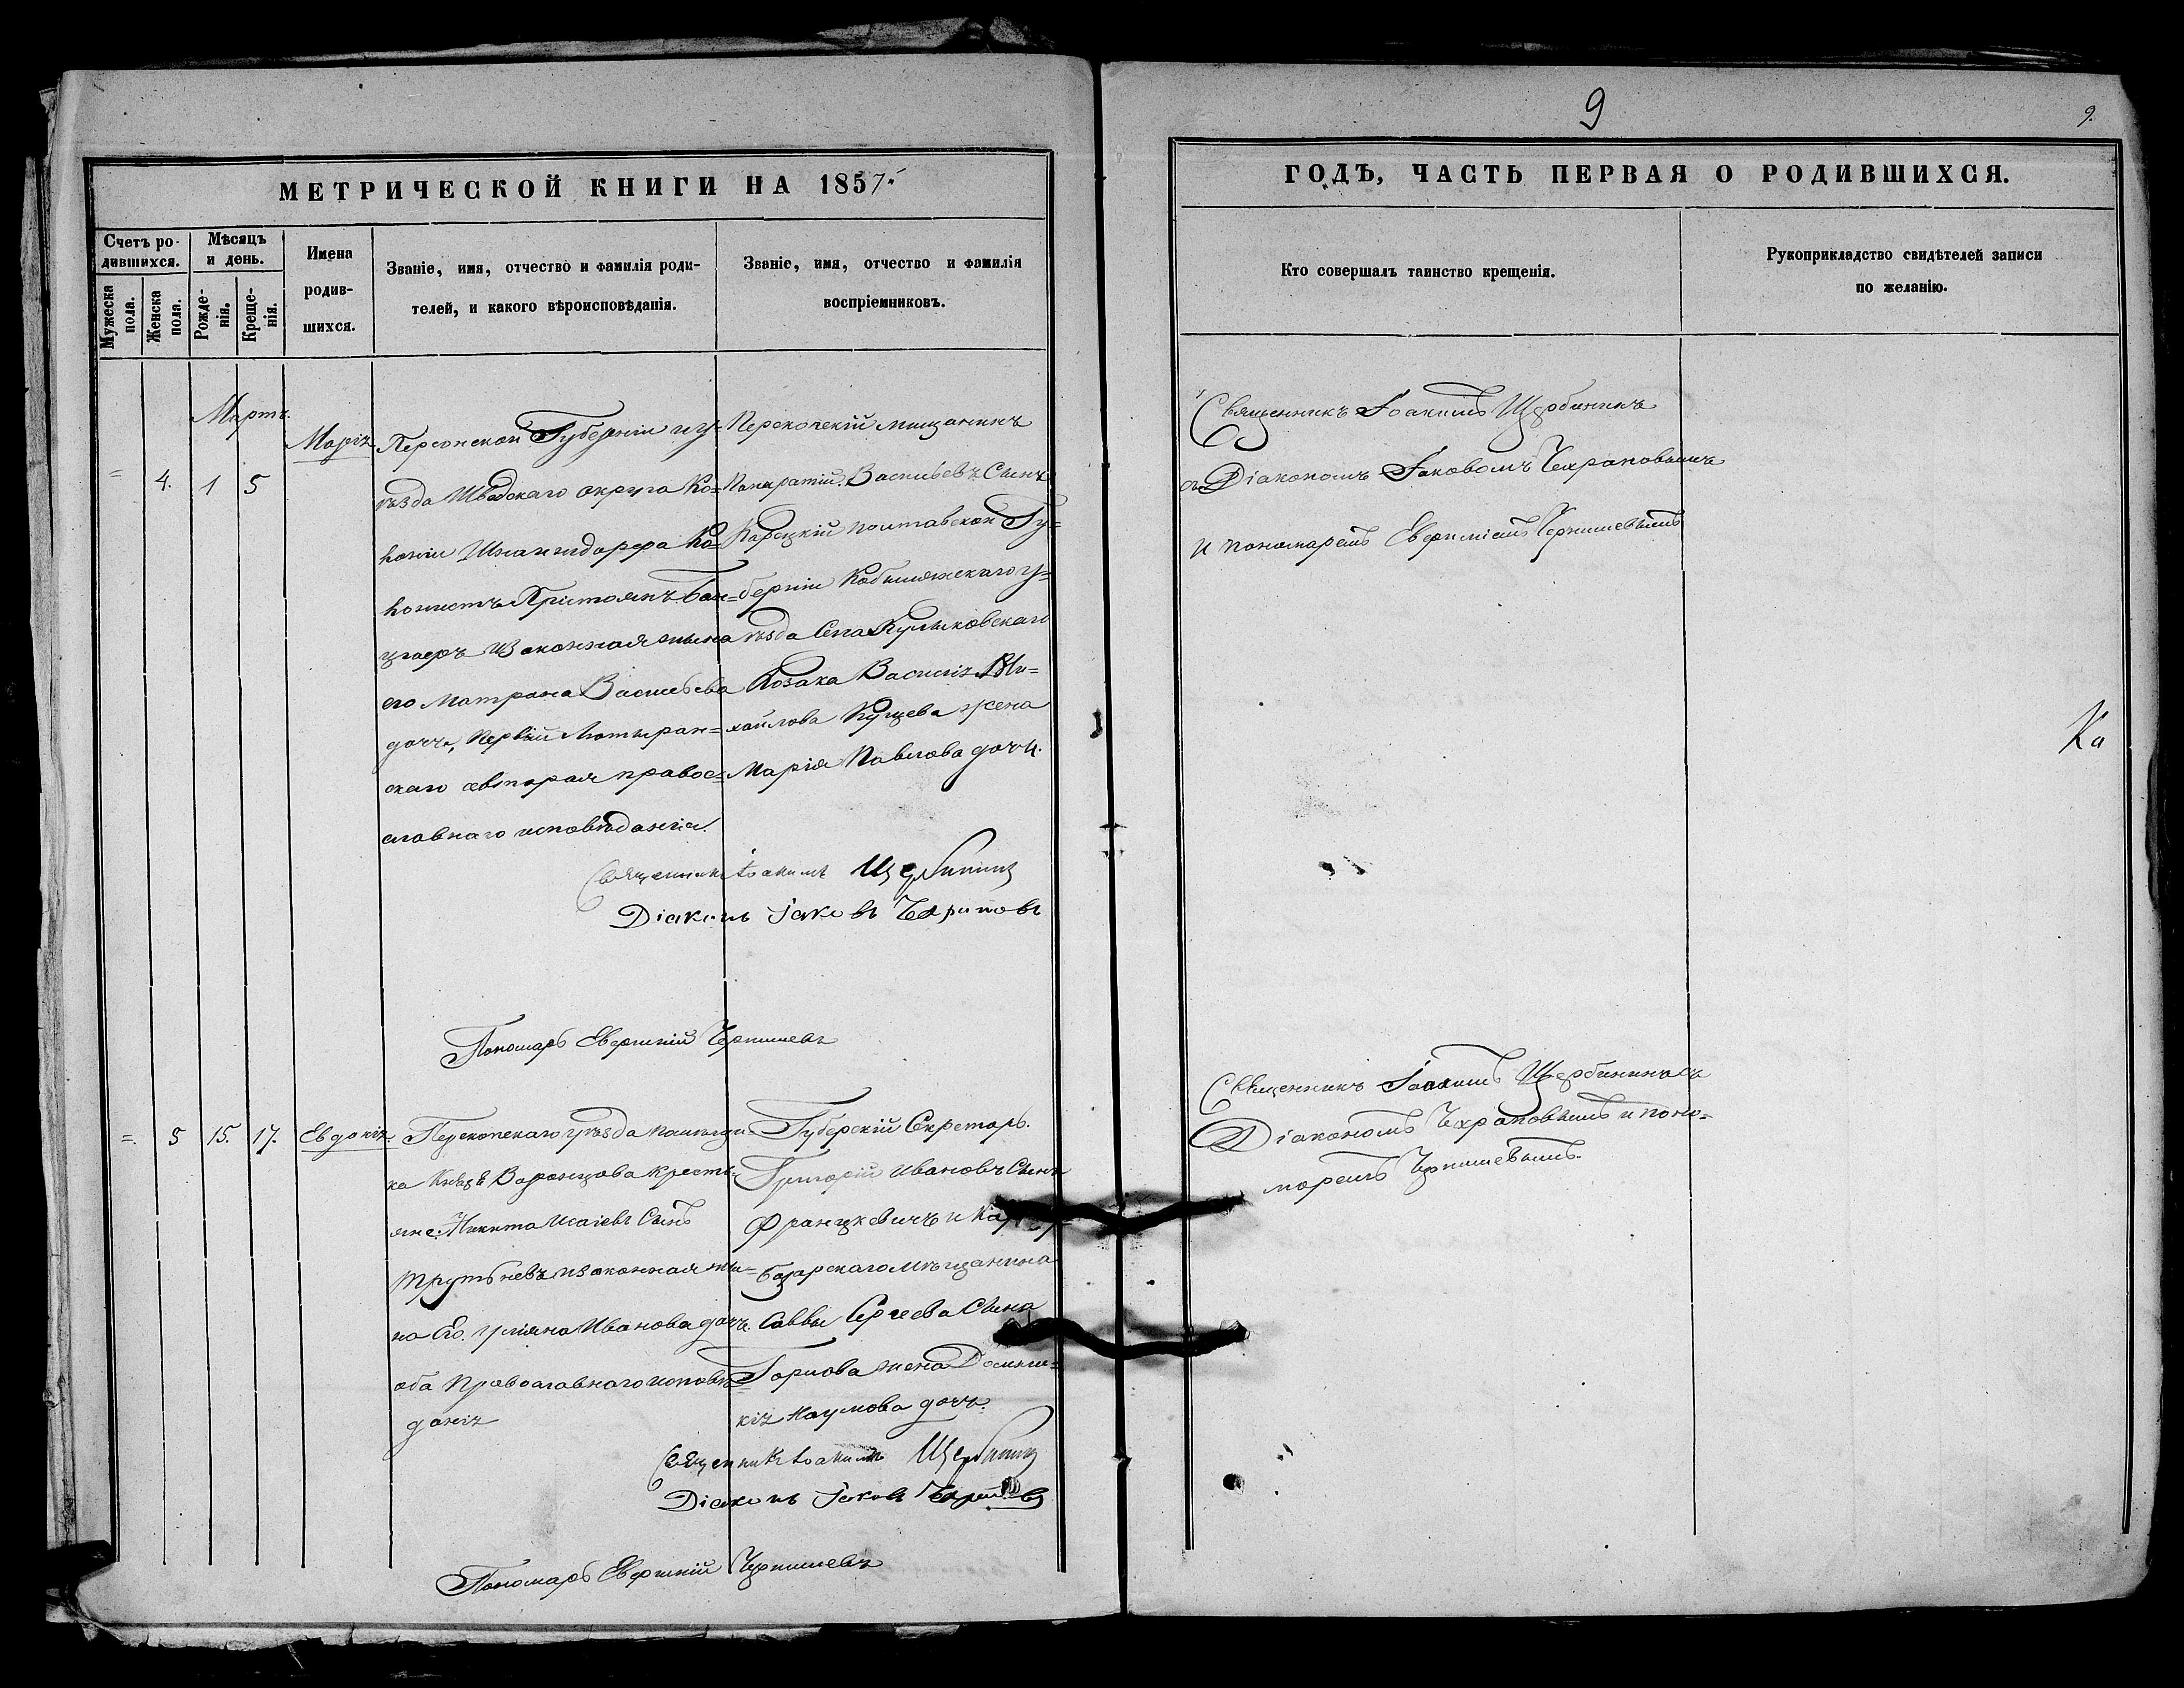 МЕТРИЧЕСКОЙ КНИГИ НА 1857й
Счетъ ро-
дившихся.
Мужеска
пола.
Женска
пола.
Мѣсяцъ
и день.
Рожде-
нія.
Креще-
нія.
Имена
родив-
шихся.
Званіе, имя, отчество и фамилія роди-
телей, и какого вѣроисповѣданія.
Званіе, имя, отчество и фамилія
воспріемниковъ.
Мартъ.
=
4.
1
5
Марія
Херсонской Губерніи и у-
ѣзда Шведскаго округа Ко-
лоніи Шлангдорфа Ко-
лонистъ Христоянъ
изаконная жена
его Матрона Васильева
дочь, Первый Лютыран-
скаго авторая правос-
славнаго исповѣданія.
Перекопскій мищанинъ
Панкратій Васильевъ Сынъ
Карецкій Полтавской Гу=
берніи Кобыляжскаго у=
ѣзда Села Кулыковскаго
Козака Василія Ми=
хайлова Куцева жена
Марія Павлова дочь.
Священникъ Іоакимъ Щербининъ
Діаконъ Іаковъ Чехрановъ
Пономарь Евфимій Чернишевъ
=.
5
15.
17.
Евдокія.
Перекопскаго уѣзда памѣщи-
ка Князя Воронцова кресть-
яне: Никита Исаіевъ Сынъ
Трутьневъ изаконная жи-
на Его. Уліяна Иванова дочь.
оба Православнаго исповѣ-
данія
Губерскій Секретарь.
Григорій Ивановъ Сынъ
Францкевичъ и
базарскаго мѣщанина
Саввы Сергеева Сына
Горлова жена Домни=
кія Наумова дочь.
Священникъ Іоакимъ Щербининъ
Діаконъ Іаковъ Чехрановъ
Пономарь Евфимій Чернишевъ
9
9.
ГОДЪ, ЧАСТЬ ПЕРВАЯ О РОДИВШИХСЯ.
Кто совершалъ таинство крещенія.
Рукоприкладство свидѣтелей записи
по желанію.
Священникъ Іоакимъ Щербининъ
съ Діакономъ Іаковомъ Чехрановымъ
и пономаремъ Евфиміемъ Чернишевымъ
Ка
Священникъ Іоакимъ Щербининъ съ
Діакономъ Чехрановымъ и поно=
моремъ Чернишевымъ.